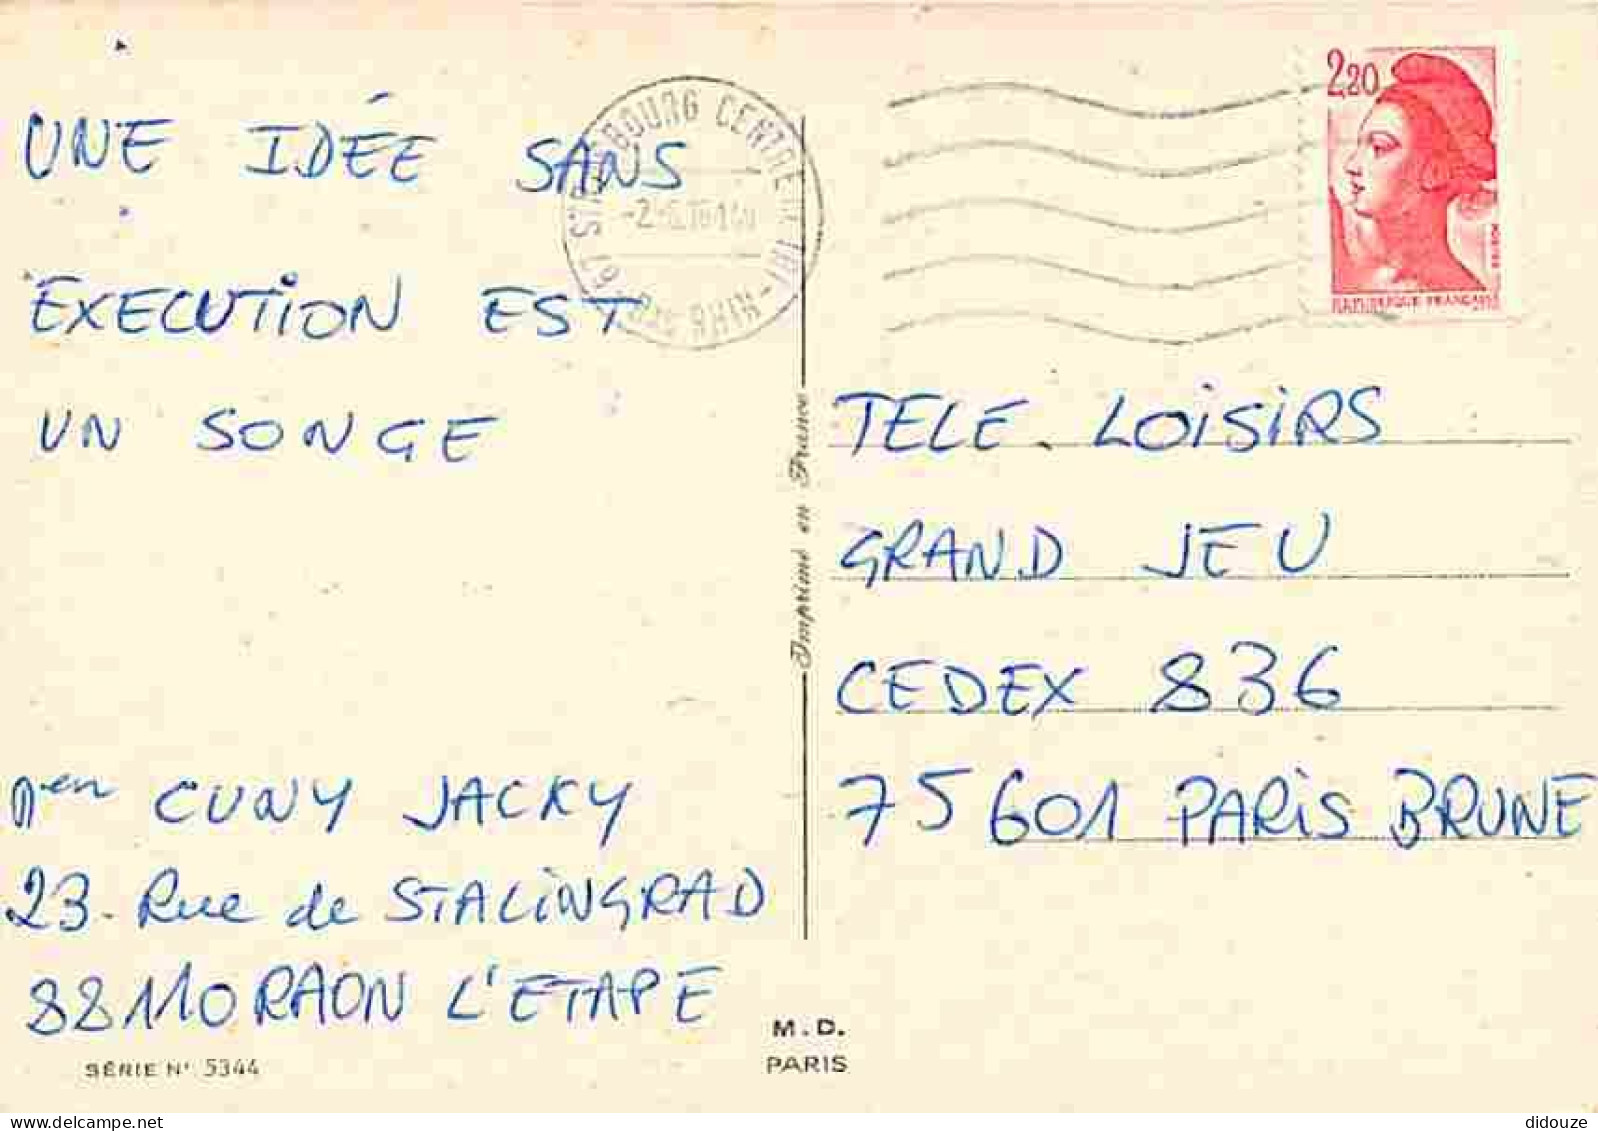 UNE IDÉE SANS
EXECUTION EST
UN SONGE
CUNY JACKY
23. Rue de STALINGRAD
88110 RAON L'ETAPE
SÉRIE N° 5344
M.D.
PARIS
Imprimé en France
67 STRASBOURG CENTRE
BAS RHIN
2,20
REPUBLIQUE FRANÇAISE
TELE. LOISIRS
GRAND JEU
CEDEX 836
75601 PARIS BRUNE
delcampe.net
didouze